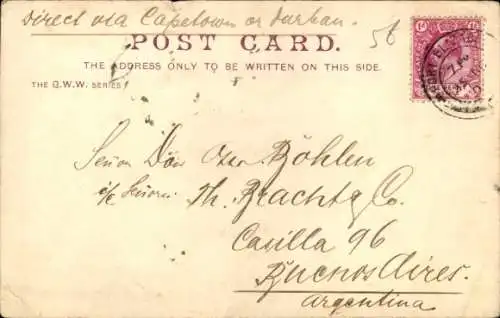 Direct via Capetown or Durban.
56
POST CARD.
THE ADDRESS ONLY TO BE WRITTEN ON THIS SIDE.
THE G.W.W. SERIES
Señor Don Otto Böhlen
Th. Bracht & Co.
Casilla 96
Buenos Aires.
Argentina